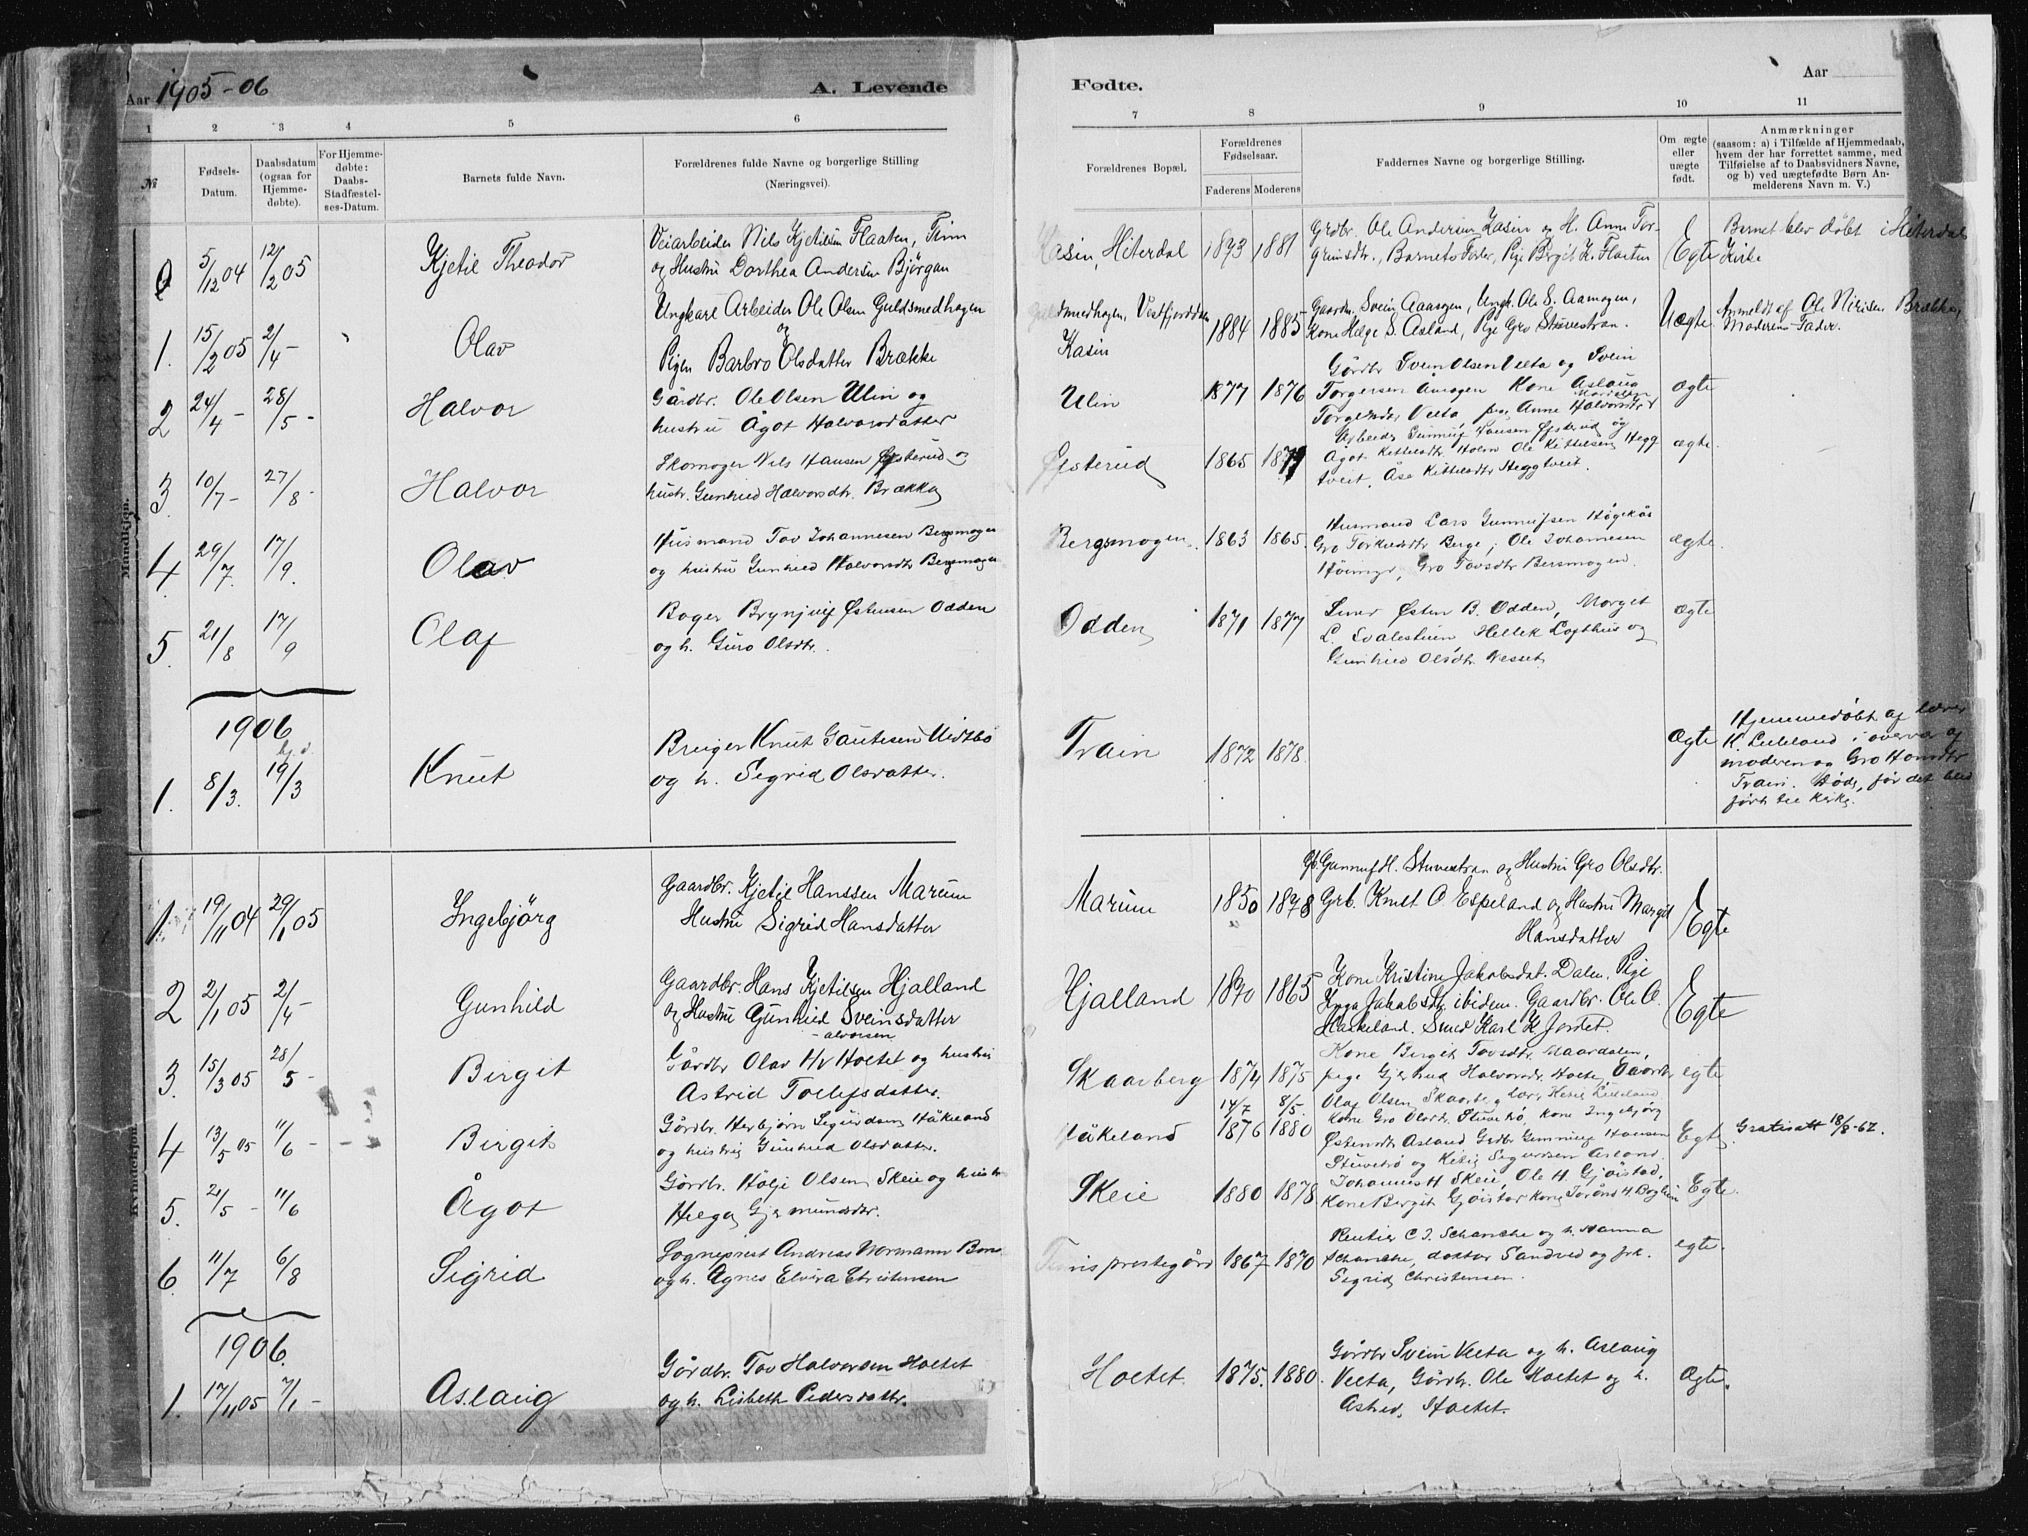 Aar 1905-06
A. Levende
1 2 3 4 5 6
№
Fødsels-
Datum.
Daabsdatum
(ogsaa for
Hjemme-
døbte).
For Hjemme-
døbte:
Daabs-
Stadfæstel-
ses-Datum.
Barnets fulde Navn.
Forældrenes fulde Navne og borgerlige Stilling
(Næringsvei).
Mandkjøn.
0 5/12 04 12/2 05 Kjetil Theodor
Veiarbeider Nils Kjetilsen Flaaten, Tinn
og Hustru Dorthea Andersen Bjørgan
1. 15/2 05 2/4 - Olav
Ungkarl Arbeider Ole Olsen Guldsmedhagen
og
Pigen Barbro Olsdatter Brække
2 24/4 - 28/5 - Halvor
Gårdbr. Ole Olsen Ulin og
hustru Ågot Halvorsdatter
3. 10/7 - 27/8 - Halvor
Skomager Nils Hansen Øfsterud og
hustr. Gunhild Halvorsdtr. Brække
4. 29/7. 17/9. Olav
Husmand Tov Johannesen Bergsmogen
og hustru Gunhild Halvorsdtr Bergsmogen
5. 21/8 17/9 Olaf
Boger Brynjulf Østensen Odden
og h. Guro Olsdtr.
1906
hj. d.
1. 8/3. 19/3 Knut
Bruger Knut Gautesen Midtbö
og h. Sigrid Olsdatter.
Kvindekjøn.
1 19/11 04 29/1 05 Ingebjörg
Gaardbr. Kjetil Hanssen Marum
Hustru Sigrid Hansdatter
2 2/1 05 2/4 - Gunhild
Gaardbr. Hans Kjetilsen Hjalland
og Hustru Gunhild Sveinsdatter
-alvorsen
3. 15/3 05 28/5 - Birgit
Gårdbr Olav Hv Holtet og hustru
Astrid Tollefsdatter.
4 13/5 05 11/6 - Birgit
Gårdbr. Herbjørn Sigurdsen Håkeland
og hustru Gunhild Olsdatter.
5. 21/5 - 11/6 Ågot
Gårdbr. Hølje Olsen Skeie og hustr
Helga Gjermundsdtr.
6. 11/7 6/8 Sigrid
Sogneprest Andreas Normann Bons
og h. Agnes Elvira Christensen
1906.
1. 17/11 05 7/1 - Aslaug
Gårdbr. Tov Halvorsen Holtet
og h. Lisbeth Pedersdattr.
Fødte.
Aar
7 8 9 10 11
Forældrenes Bopæl.
Forældrenes
Fødselsaar.
Faderens Moderens
Faddernes Navne og borgerlige Stilling.
Om ægte
eller
uægte
født.
Anmærkninger
(saasom: a) i Tilfælde af Hjemmedaab,
hvem der har forrettet samme, med
Tilføielse af to Daabsvidners Navne,
og b) ved uægtefødte Børn An-
melderens Navn m. V.)
Kasin, Hiterdal 1873 1881
Grdbr. Ole Andersen Kasin og H. Anne Tor-
grimsdtr., Barnets Forler, Pige Birgit K. Flaaten
Egte
Barnet blev døbt i Hiterdal
Kirke
Guldsmedhagen, Vestfjorddalen
Kasin 1884 1885
Gaardm. Svein Aamogen, Ungk. Ole S. Aamogen,
Kone Helge S. Asland, Pige Gro Stuvestran.
Uægte
Anmeldt af Ole Nilsen Brække,
Moderens Fader.
Ulin 1877 1876
Gårdbr Svein Olsen Velta og Svein
Torgersen Åmogen Kone Aslaug
Torgersdtr Velta, pige Anne Halvorsdtr
ægte
Øfsterud 1865 1879
Arbeider Gunnulf Hansen Øfsterud og
Ågot Kittilsdtr Holm Ole Kittilsen Hegg
tveit, Åse Kittilsdtr Heggtveit.
ægte.
Bergsmogen. 1863 1865.
Husmand Lars Gunnulfsen Høgekås
Gro Torkildsdtr Berge, Ole Johannesen
Høimyr, Gro Tovsdtr Bersmogen.
ægte.
Odden 1871 1877
Smed Østen B. Odden, Morget
L. Svalestuen Hellek Lofthus og
Gunhild Olsdtr Nesset.
ægte
Train 1872 1878.
ægte
Hjemmedøbt af lærer
K. Lieleland i overvær af
moderen og Gro Hansdtr
Train. Døde, før det blev
ført til kirke.
Marum 1850 1878
Gb. Gunnulf H. Stuvestran og Hustru Gro Olsdtr.
Grb. Knut O. Espeland og Hustru Margit
Hansdatter
Egte
Hjalland 1870 1865
Kone Kristine Jakobsdat. Dalen, Pige
Inga Jakobsdtr ibidem. Gaardbr. Ole O.
Haakeland. Smed Karl K. Jordet.
Egte
Skaarberg 1874 1875
Kone Birgit Tovsdtr Maardalen,
pige Gjertrud Halvorsdtr Holte, Gaardbr
Olaf Olsen Skaarberg, lærer Kittil Lieleland
egte
Håkeland 14/7 1876 8/5. 1880
Kone Gro Olsdtr. Stuvebö, kone Ingebjörg
Østensdtr Asland Grdbr Gunnulf Hansen
Stuvebö og Kittil Sigurdsen Asland.
Egte
Gratisatt 18/8-62.
Skeie 1880 1878
Johannes H Skeie, Ole H. Gjøistad,
Kone Bergit Gjøistad kone Torøne H. Bøglien
Egte.
Tinns prestegård 1867 1870
Rentier C. J. Schanche og h. Hanna
Schanche, doktor Sandved og frk.
Sigrid Christensen.
egte.
Holtet 1875. 1880.
Gårdbr Svein Velta og h. Aslaug
Velta, Gårdbr. Ole Holtet og h.
Astrid Holtet.
Ægte.